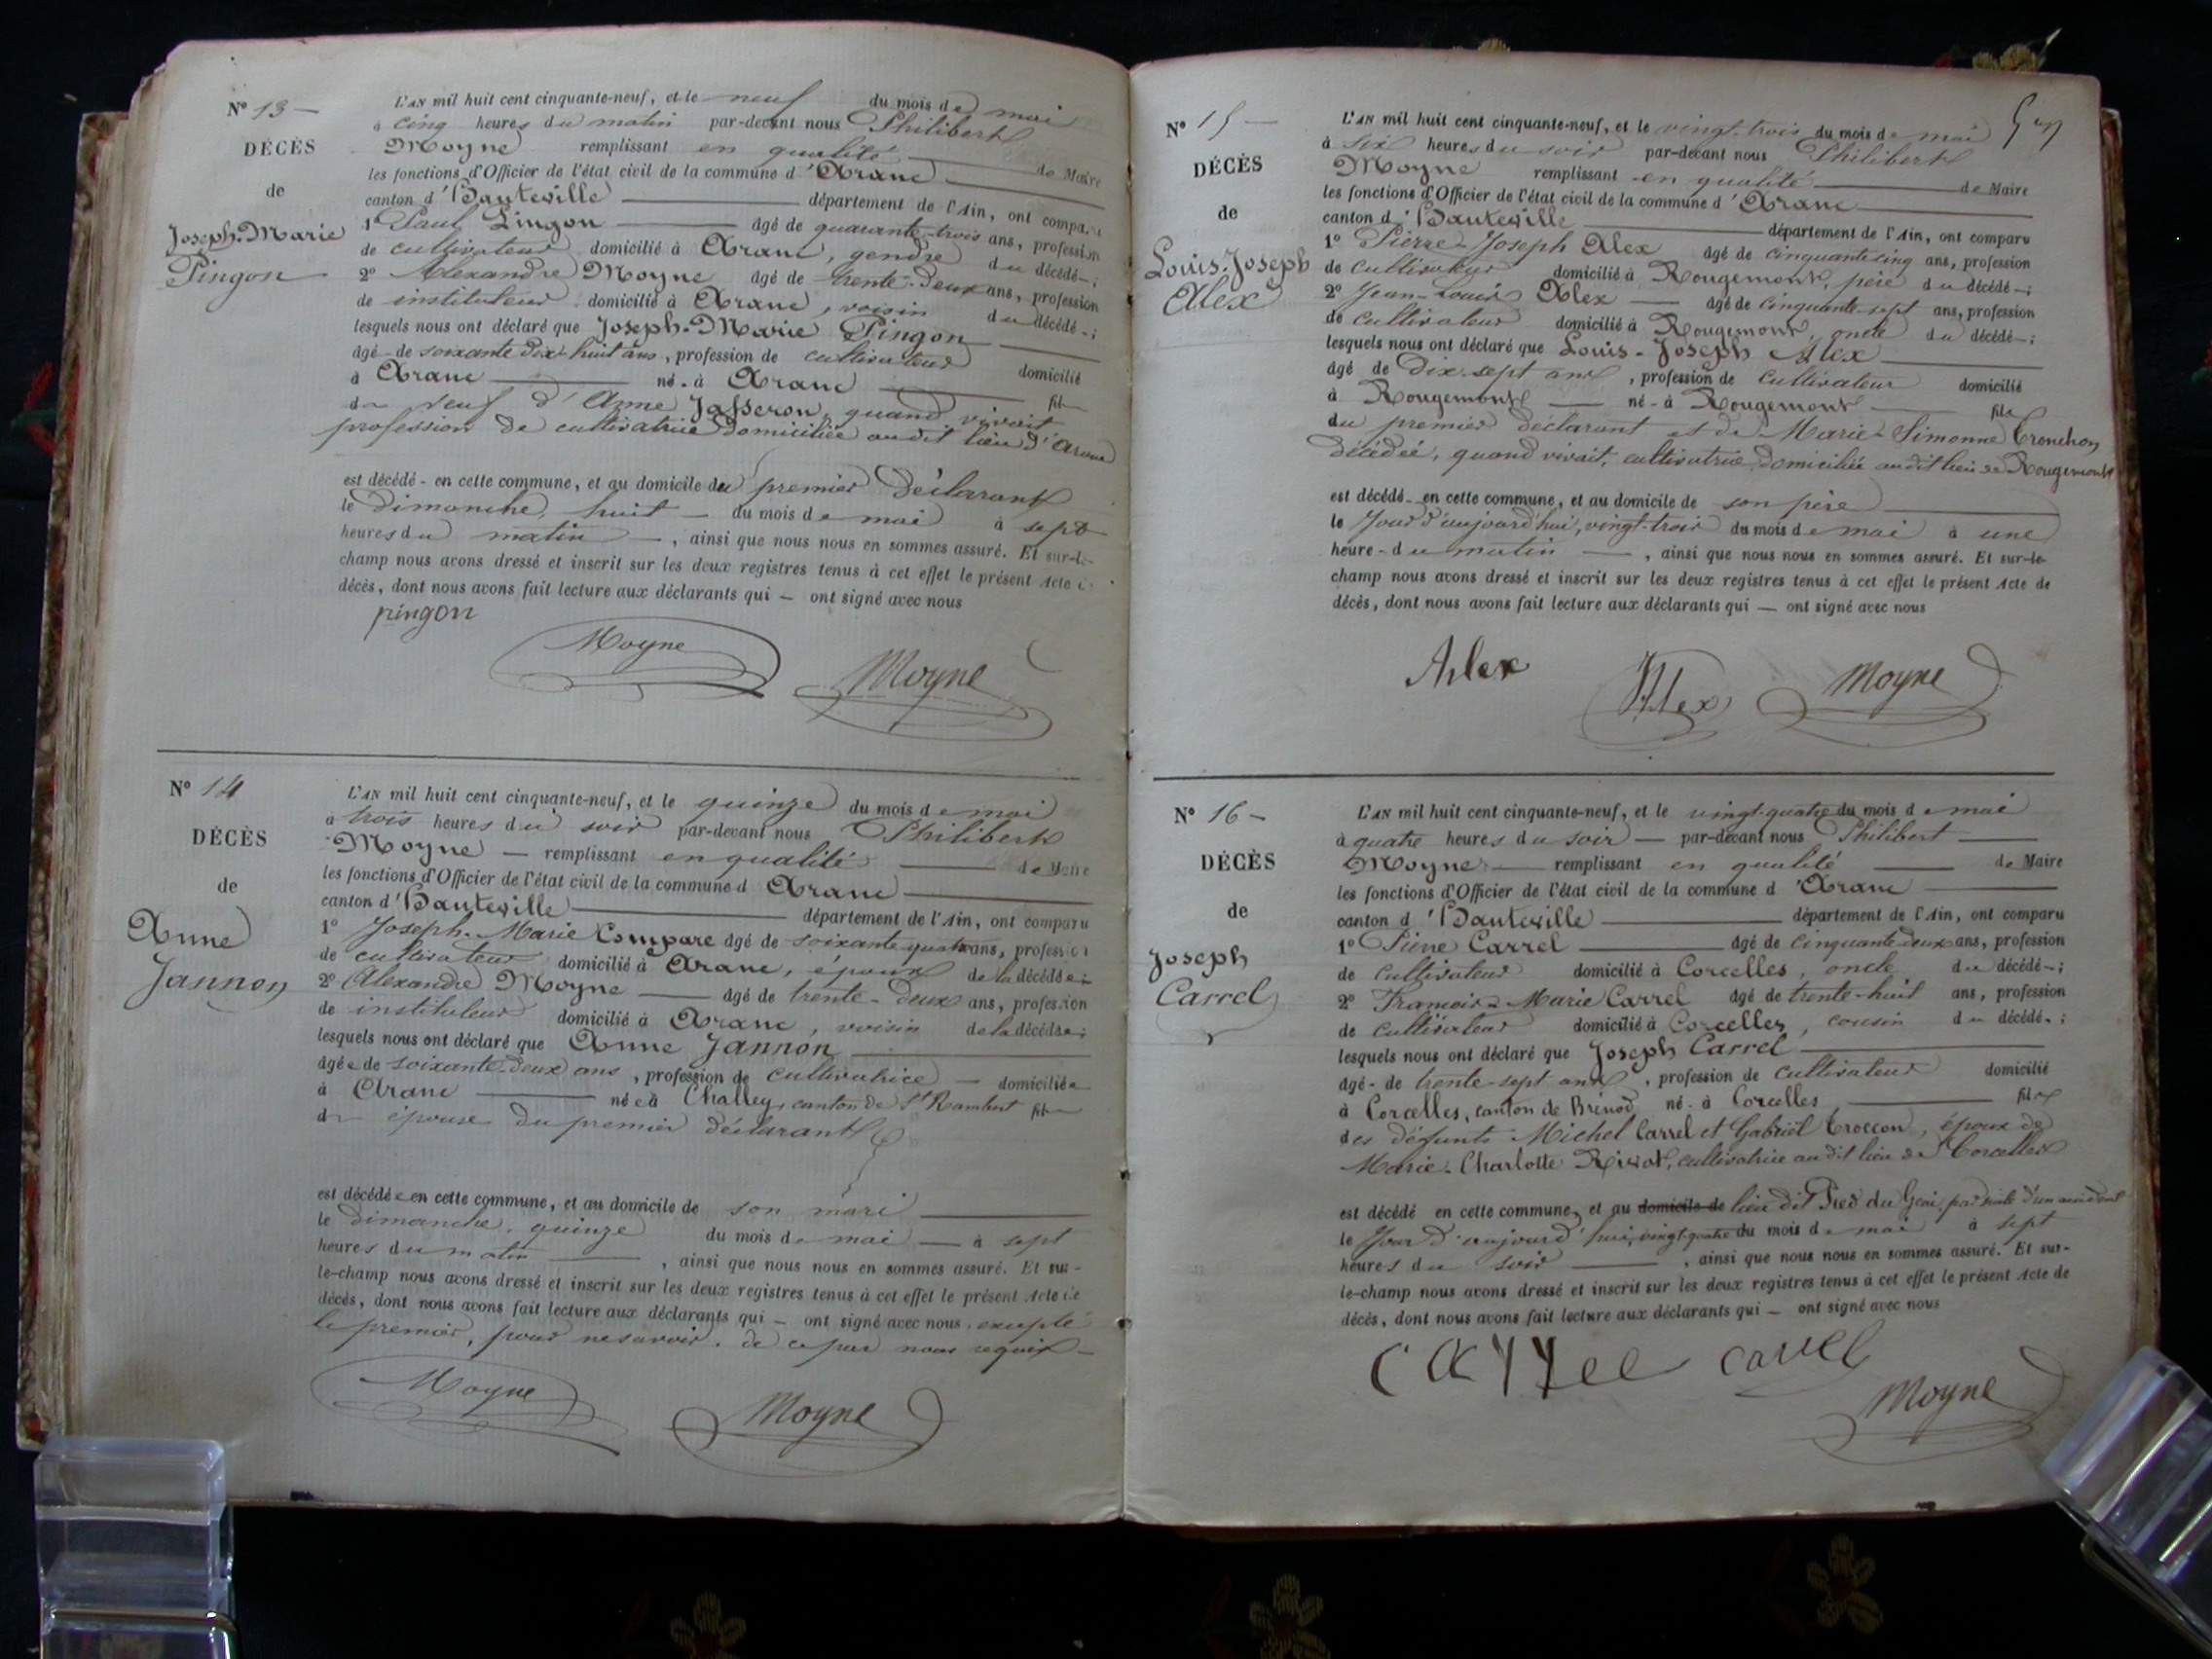 N° 13 —
DÉCÈS
de
Joseph-Marie
Pingon
L'AN mil huit cent cinquante-neuf, et le neuf du mois de mai
à cinq heures du matin par-devant nous Philibert
Moyne remplissant en qualité de Maire
les fonctions d'Officier de l'état civil de la commune d'Aranc
canton d'Hauteville département de l'Ain, ont comparu
1° Paul Pingon âgé de quarante-trois ans, profession
de cultivateur domicilié à Aranc, gendre du décédé - ;
2° Alexandre Moyne âgé de trente-deux ans, profession
de instituteur domicilié à Aranc, voisin du décédé - ;
lesquels nous ont déclaré que Joseph-Marie Pingon
âgé - de soixante dix-huit ans, profession de cultivateur domicilié
à Aranc né - à Aranc fils
de veuf d'Anne Jasseron, quand vivait
profession de cultivatrice domiciliée au dit lieu d'Aranc
est décédé - en cette commune, et au domicile du premier déclarant
le Dimanche, huit — du mois de mai à sept
heures du matin —, ainsi que nous nous en sommes assuré. Et sur-le-
champ nous avons dressé et inscrit sur les deux registres tenus à cet effet le présent Acte de
décès, dont nous avons fait lecture aux déclarants qui — ont signé avec nous
pingon
Moyne
Moyne
N° 14
DÉCÈS
de
Anne
Jannon
L'AN mil huit cent cinquante-neuf, et le quinze du mois de mai
à trois heures du soir par-devant nous Philibert
Moyne — remplissant en qualité de Maire
les fonctions d'Officier de l'état civil de la commune d Aranc
canton d'Hauteville département de l'Ain, ont comparu
1° Joseph-Marie Compare âgé de soixante-quatre ans, profession
de cultivateur domicilié à Aranc, époux de la décédée ;
2° Alexandre Moyne — âgé de trente-deux ans, profession
de instituteur domicilié à Aranc, voisin de la décédée ;
lesquels nous ont déclaré que Anne Jannon
âgée de soixante-deux ans, profession de cultivatrice — domiciliée
à Aranc née à Challey, canton de St Rambert fil
de épouse du premier déclarant
est décédée en cette commune, et au domicile de son mari
le dimanche, quinze du mois de mai — à sept
heures du matin, ainsi que nous nous en sommes assuré. Et sur-
le-champ nous avons dressé et inscrit sur les deux registres tenus à cet effet le présent Acte de
décès, dont nous avons fait lecture aux déclarants qui — ont signé avec nous, excepté
le premier, pour ne savoir, de ce par nous requis —
Moyne
Moyne
N° 15 —
DÉCÈS
de
Louis-Joseph
Alex
L'AN mil huit cent cinquante-neuf, et le vingt-trois du mois de mai
à six heures du soir par-devant nous Philibert
Moyne remplissant en qualité de Maire
les fonctions d'Officier de l'état civil de la commune d'Aranc
canton d'Hauteville département de l'Ain, ont comparu
1° Pierre-Joseph Alex âgé de cinquante-cinq ans, profession
de cultivateur domicilié à Rougemont, père du décédé - ;
2° Jean-Louis Alex — âgé de cinquante-sept ans, profession
de cultivateur domicilié à Rougemont, oncle du décédé - ;
lesquels nous ont déclaré que Louis-Joseph Alex
âgé de Dix-sept ans, profession de Cultivateur domicilié
à Rougemont — né - à Rougemont fils
du premier déclarant et de Marie-Simonne Cronchon
Décédée, quand vivait, cultivatrice domiciliée au dit lieu de Rougemont
est décédé - en cette commune, et au domicile de son père
le Jour d'aujourd'hui, vingt-trois du mois de mai à une
heure - du matin —, ainsi que nous nous en sommes assuré. Et sur-le-
champ nous avons dressé et inscrit sur les deux registres tenus à cet effet le présent Acte de
décès, dont nous avons fait lecture aux déclarants qui — ont signé avec nous
Alex
Alex
Moyne
N° 16 —
DÉCÈS
de
Joseph
Carrel
L'AN mil huit cent cinquante-neuf, et le vingt-quatre du mois de mai
à quatre heures du soir — par-devant nous Philibert —
Moyne — remplissant en qualité — de Maire
les fonctions d'Officier de l'état civil de la commune d'Aranc
canton d'Hauteville département de l'Ain, ont comparu
1° Pierre Carrel âgé de cinquante-deux ans, profession
de cultivateur domicilié à Corcelles, oncle du décédé - ;
2° François-Marie Carrel âgé de trente-huit ans, profession
de cultivateur domicilié à Corcelles, cousin du décédé - ;
lesquels nous ont déclaré que Joseph Carrel
âgé - de trente-sept ans, profession de cultivateur domicilié
à Corcelles, canton de Brénod né - à Corcelles fils
des défunts Michel Carrel et Gabriel Croccon, époux de
Marie-Charlotte Rivot, cultivatrice au dit lieu de Corcelles
est décédé en cette commune, et au domicile de lieu dit Pied du Geai, par suite d'un accident
le Jour d'aujourd'hui, vingt-quatre du mois de mai à sept
heures du soir —, ainsi que nous nous en sommes assuré. Et sur-
le-champ nous avons dressé et inscrit sur les deux registres tenus à cet effet le présent Acte de
décès, dont nous avons fait lecture aux déclarants qui — ont signé avec nous
carrel carrel
Moyne